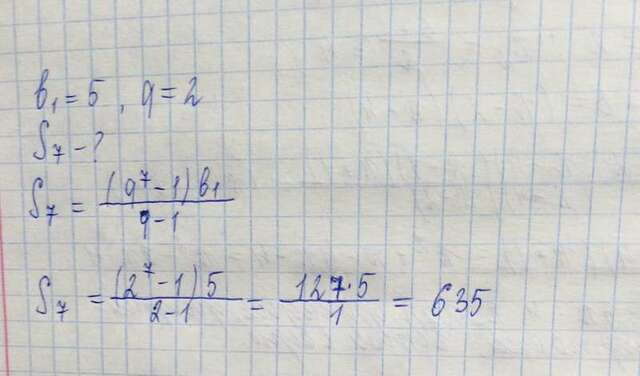 b₁ = 5 , q = 2
S₇ - ?
S₇ = (q⁷ - 1) b₁ / q - 1
S₇ = (2⁷ - 1) 5 / 2 - 1 = 127 · 5 / 1 = 635